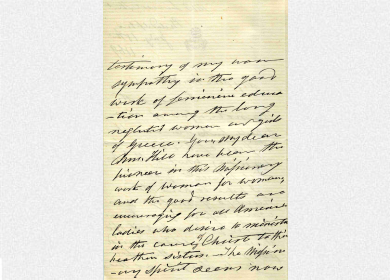 testimony of my warm
sympathy in the good
work of feminine educa
-tion among the long
neglected women and girls
of Greece. You my dear
Mrs Hill have been the
pioneer in this Missionary
work of woman for woman,
and the good results are
encouraging for all American
ladies who desire to minister
in the cause of Christ to their
heathen sisters. The Mission
-ary Spirit seems now